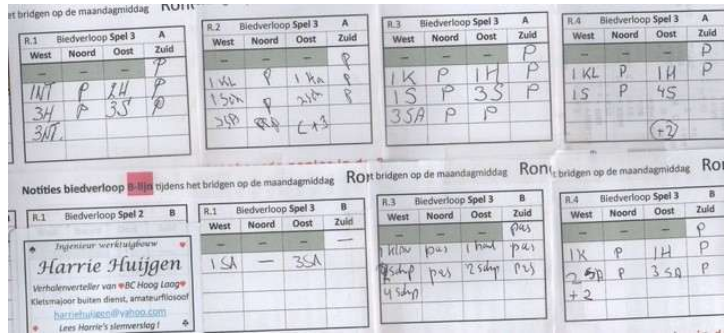 et bridgen op de maandagmiddag
R.1 Biedverloop Spel 3 A
West Noord Oost Zuid
– – – P
1NT P 2H P
3H P 3S P
3NT.
R.2 Biedverloop Spel 3 A
West Noord Oost Zuid
– – – P
1 KL P 1 Ha P
1 Sch P P
R.3 Biedverloop Spel 3 A
West Noord Oost Zuid
– – – P
1K P 1H P
1S P 3S P
3SA P P
R.4 Biedverloop Spel 3 A
West Noord Oost Zuid
– – – P
1 KL P 1H P
1S P 4S
+2
Notities biedverloop B-lijn tijdens het bridgen op de maandagmiddag
Ro
t bridgen op de maandagmiddag
Ron
t bridgen op de maandagmiddag
Ro
R.1 Biedverloop Spel 2 B
Ingenieur werktuigbouw
Harrie Huijgen
Verhalenverteller van ♥BC Hoog Laag♥
Kletsmajoor buiten dienst, amateurfilosoof
harriehuijgen@yahoo.com
Lees Harrie's slemverslag !
R.1 Biedverloop Spel 3 B
West Noord Oost Zuid
– – – –
1 SA – 3SA
R.3 Biedverloop Spel 3 B
West Noord Oost Zuid
– – – pas
1 klav pas 1 hart pas
schp pas 2 schp pas
4 schp
R.4 Biedverloop Spel 3 B
West Noord Oost Zuid
– – – P
1K P 1H P
2 SA P 3 SA P
+2